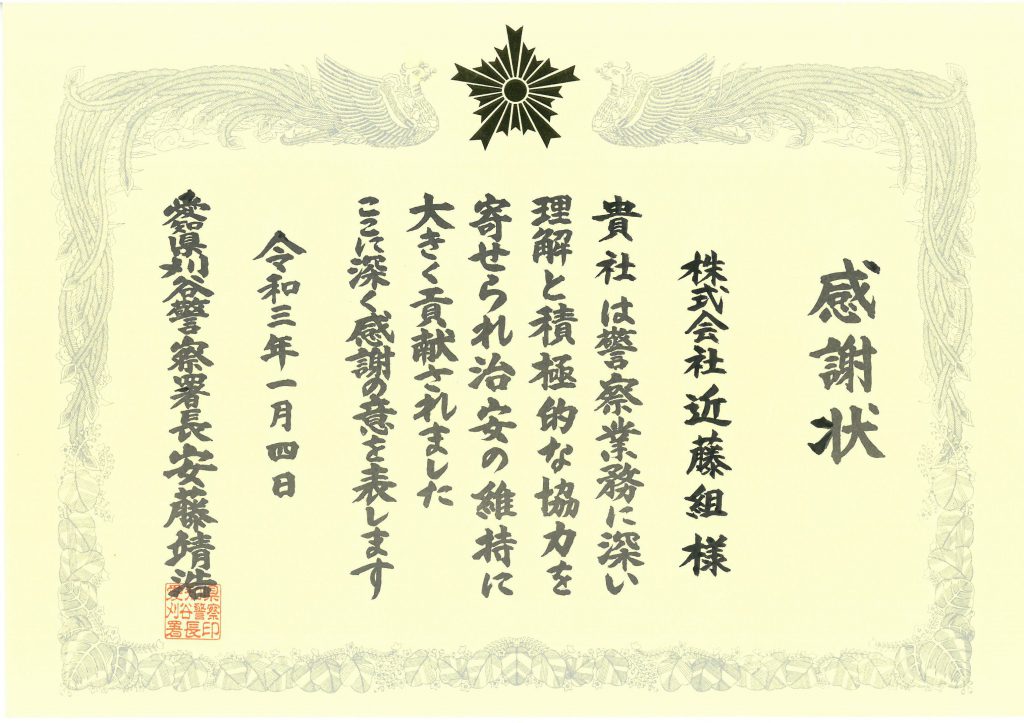 感謝状
株式会社近藤組様
貴社は警察業務に深い
理解と積極的な協力を
寄せられ治安の維持に
大きく貢献されました
ここに深く感謝の意を表します
令和三年一月四日
愛知県刈谷警察署長安藤靖浩
県察印
谷警長
愛刈署